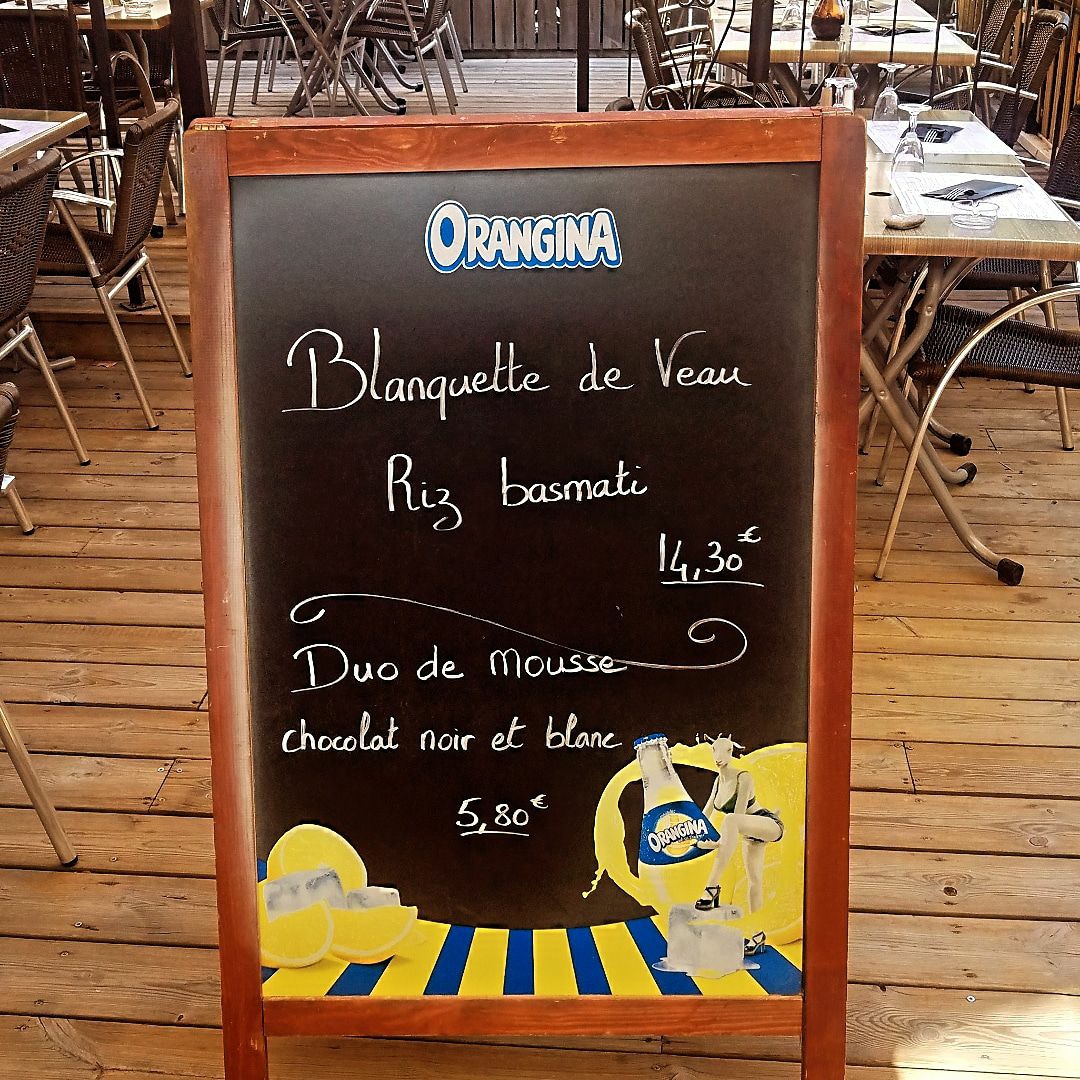 ORANGINA
Blanquette de Veau
Riz basmati
14,30€
Duo de mousse
chocolat noir et blanc
5,80€
ORANGINA